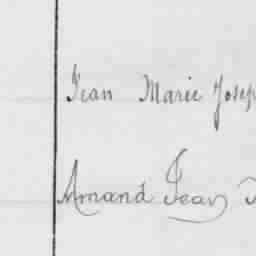 Jean Marie Josep
Armand Jean